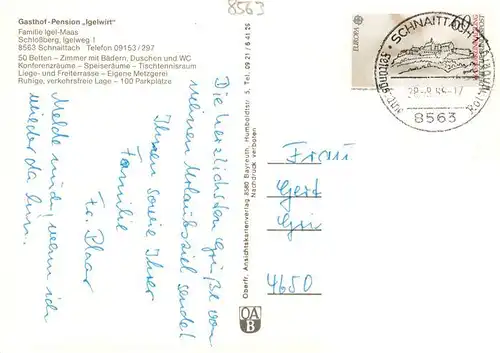 8563
Gasthof-Pension „Igelwirt"
Familie Igel-Maas
Schloßberg, Igelweg 1
8563 Schnaittach Telefon 09153/297
50 Betten – Zimmer mit Bädern, Duschen und WC
Konferenzräume – Speiseräume – Tischtennisraum
Liege- und Freiterrasse – Eigene Metzgerei
Ruhige, verkehrsfreie Lage – 100 Parkplätze
Die herzlichsten Grüße von
meinem Urlaubsziel sendet
Ihnen sowie Ihrer
Familie
Fr. Plaar
Melde mich, wenn ich
wieder da bin.
Oberfr. Ansichtskartenverlag 8580 Bayreuth, Humboldtstr. 5, Tel. 09 21 / 6 41 26
Nachdruck verboten
OA
B
EUROPA
60
SCHNAITTACH
Festung
8563
Frau
Gert
4650